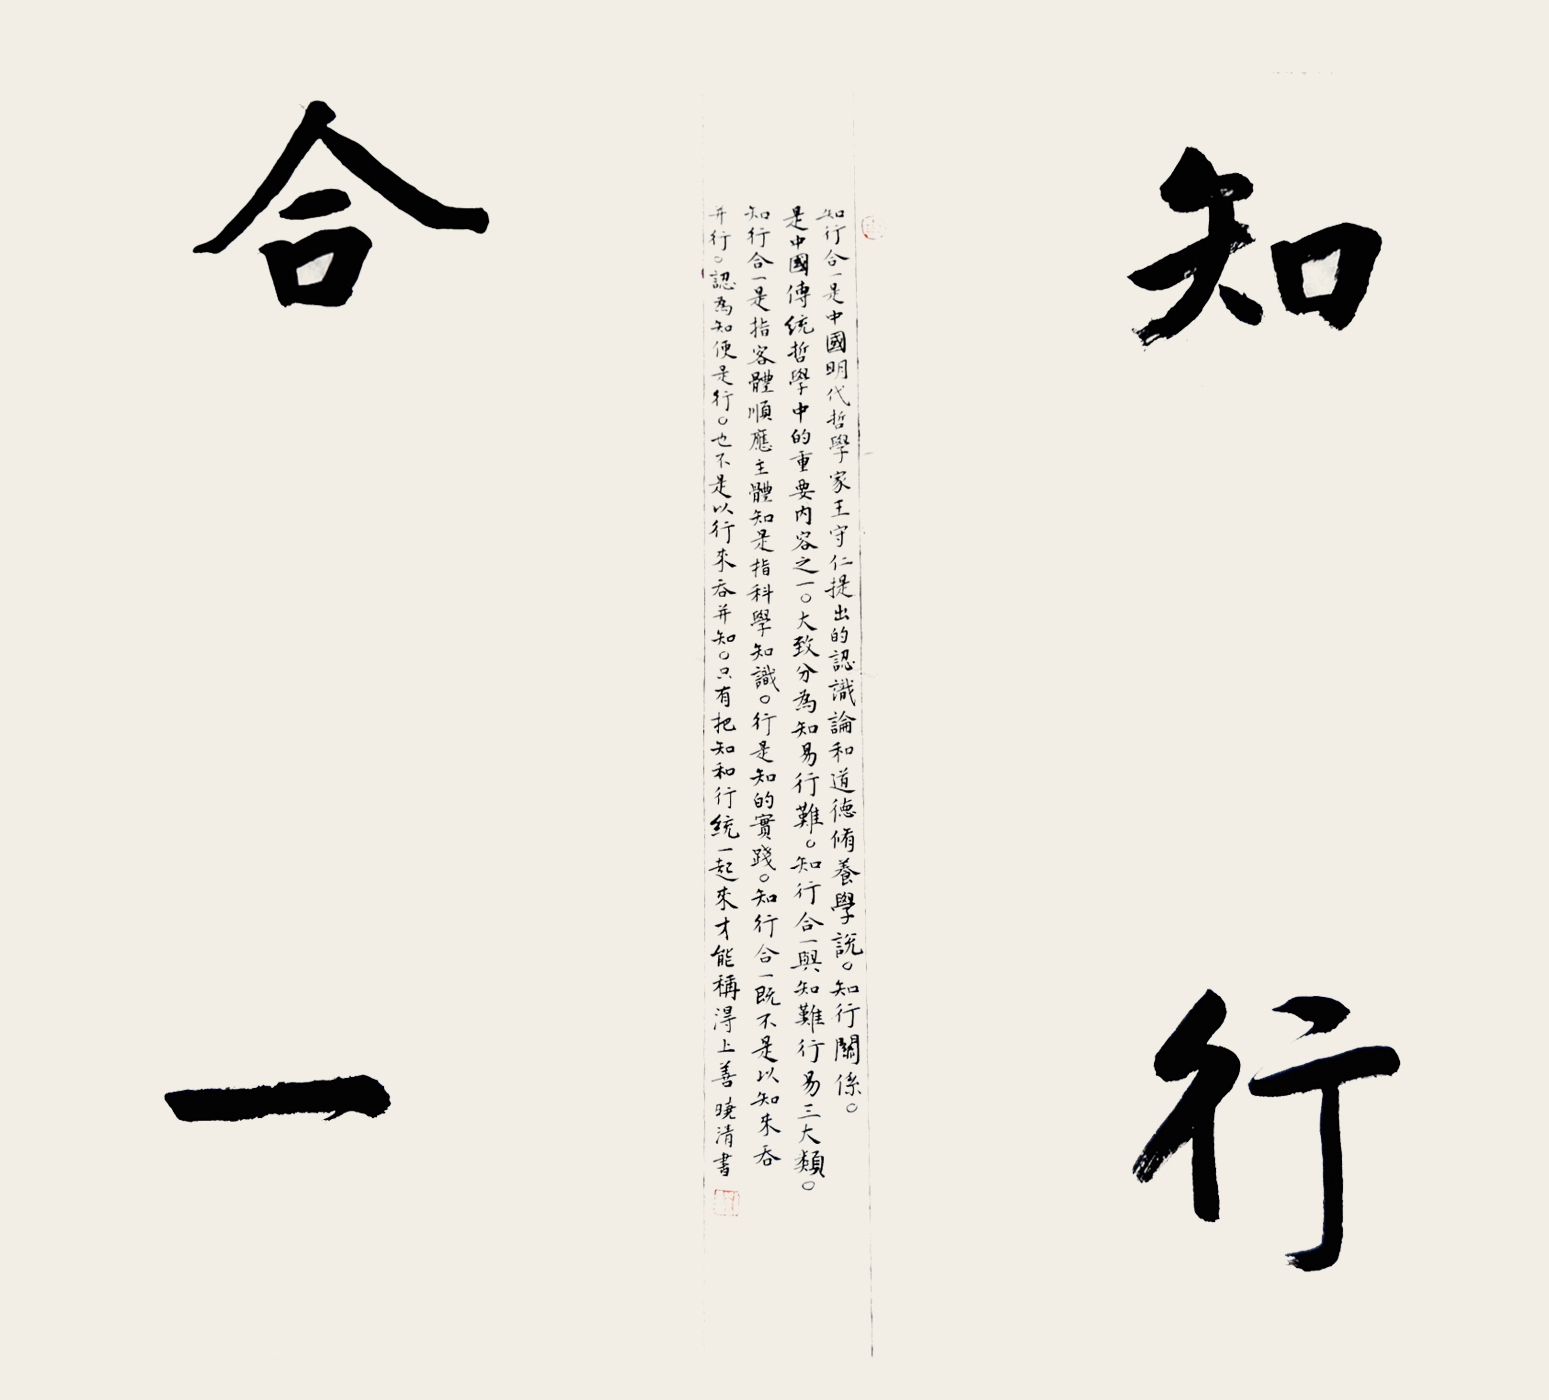 知行
知行合一是中國明代哲學家王守仁提出的認識論和道德脩養學説。知行關係。
是中國傳統哲學中的重要内容之一。大致分為知易行難。知行合一與知難行易三大類。
知行合一是指客體順應主體知是指科學知識。行是知的實踐。知行合一既不是以知來吞
并行。認為知便是行。也不是以行來吞并知。只有把知和行統一起來才能稱得上善 曉清書
合一